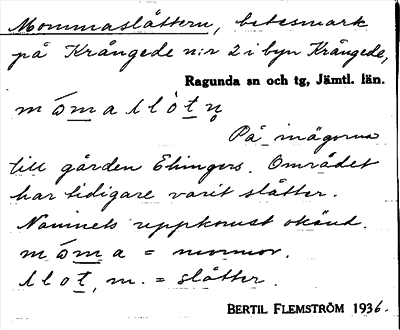 Mommaslåttern, betesmark
på Krångede n:r 2 i byn Krångede,
Ragunda sn och tg, Jämtl. län.
På inägorna
till gården Ehingers. Området
har tidigare varit slåtter.
Namnets uppkomst okänd.
= mormor.
m. = slåtter.
BERTIL FLEMSTRÖM 1936.